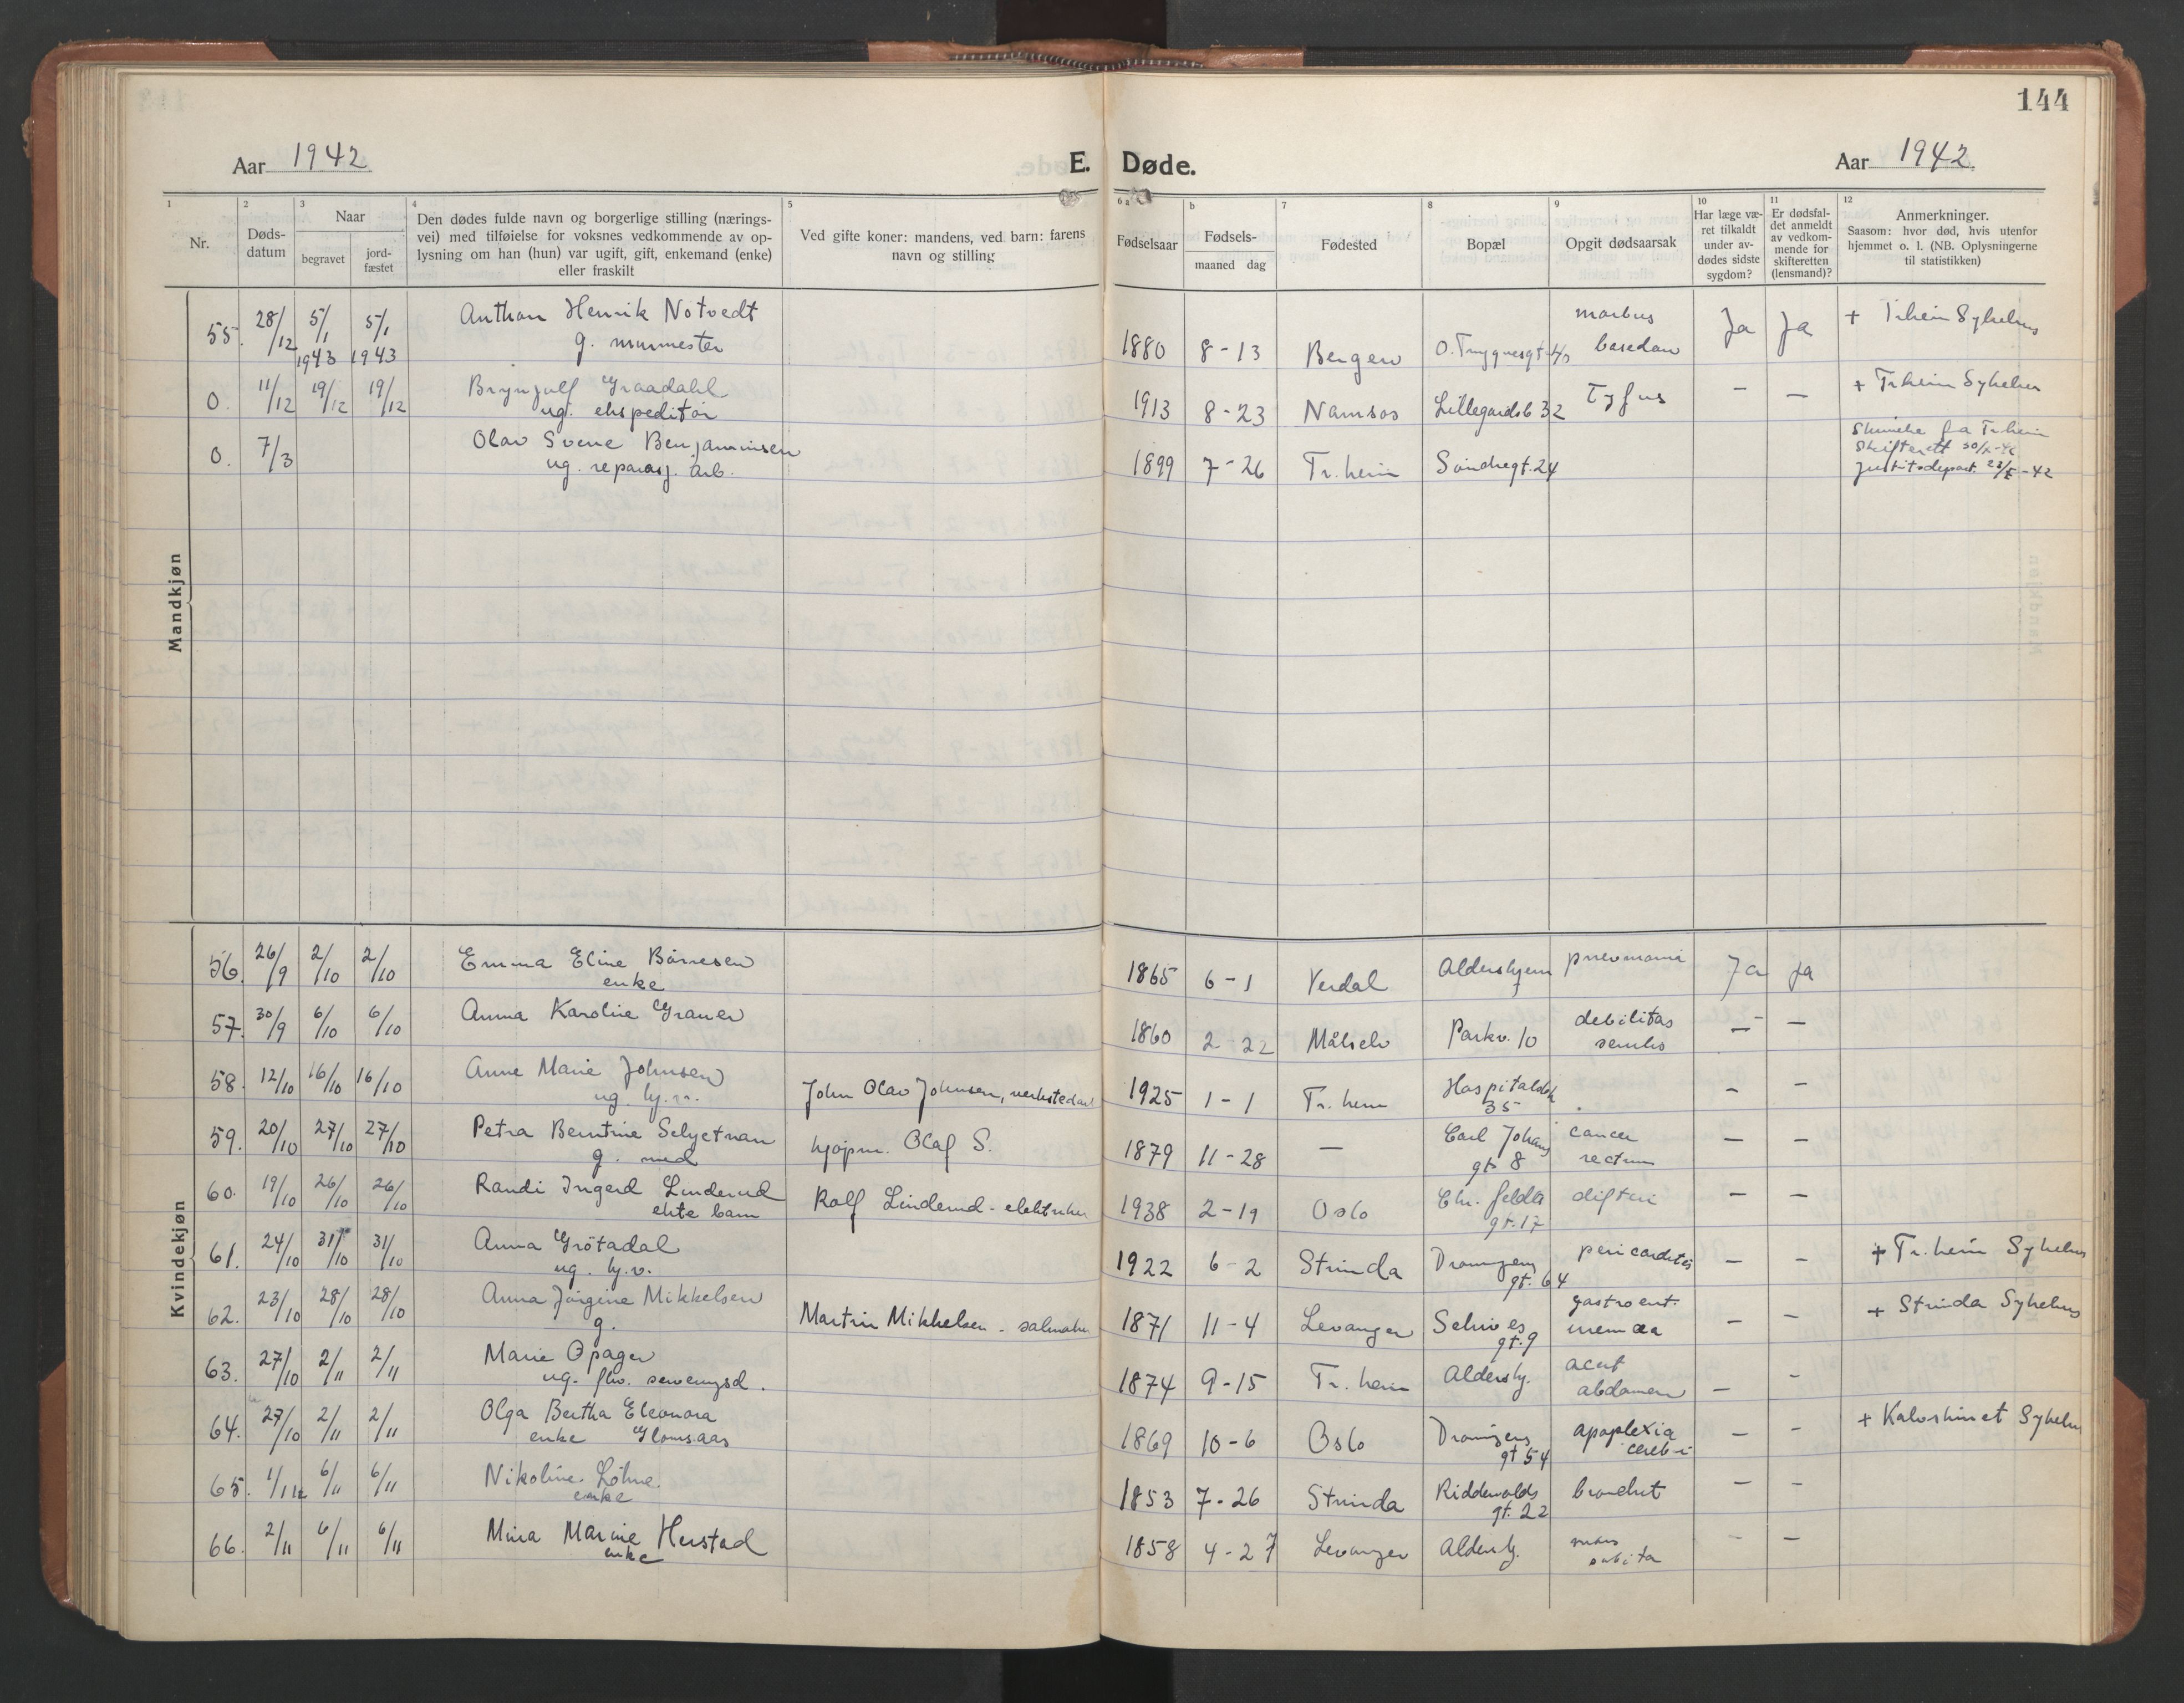 144
Aar 1942 E. Døde. Aar 1942
1 2 3 4 5 6 a b 7 8 9 10 11 12
Nr.
Døds-
datum
Naar
begravet
jord-
fæstet
Den dødes fulde navn og borgerlige stilling (nærings-
vei) med tilføielse for voksnes vedkommende av op-
lysning om han (hun) var ugift, gift, enkemand (enke)
eller fraskilt
Ved gifte koner: mandens, ved barn: farens
navn og stilling
Fødselsaar
Fødsels-
maaned dag
Fødested
Bopæl
Opgit dødsaarsak
Har læge væ-
ret tilkaldt
under av-
dødes sidste
sygdom?
Er dødsfal-
det anmeldt
av vedkom-
mende for
skifteretten
(lensmand)?
Anmerkninger.
Saasom: hvor død, hvis utenfor
hjemmet o. l. (NB. Oplysningerne
til statistikken)
Mandkjøn
55. 28/12 5/1 1943 5/1 1943 Anthon Henrik Notvedt 1880 8-13 Bergen O. Trygvesgt. morbus Ja Ja + Trheim Sykehus
g. murmester basedow
0. 11/12 19/12 19/12 Brynjulf Graadahl 1913 8-23 Namsos Lillegårdsb 32 Tyfus - - + Trheim Sykehus
ug. ekspeditør
0. 7/3 Olav Sverre Benjaminsen 1899 7-26 Tr.heim Søndregt. 24 fra Trheim
ug. reparasj. arb. Skifterett
Justitsdepart. -42
Kvindekjøn
56. 26/9 2/10 2/10 Emma Eline Börresen 1865 6-1 Verdal Aldershjem pneumoni Ja Ja
enke
57. 30/9 6/10 6/10 Anna Karoline Graner 1860 2-22 Målselv Parkv. 10 debilitas - -
senilis
58. 12/10 16/10 16/10 Anne Marie Johnsen John Olav Johnsen, verkstedarb 1925 1-1 Tr. heim 35 - -
ug. hj.v.
59. 20/10 27/10 27/10 Petra Berntine kjøpm. Olaf S. 1879 11-28 - Carl Johans cancer - -
g. med gt 8 rectum
60. 19/10 26/10 26/10 Randi Ingerd Linderud Rolf Linderud - elektriker 1938 2-19 Oslo difteri - -
ekte barn gt. 17
61. 24/10 31/10 31/10 Anna Grötadal 1922 6-2 Strinda Dronningens pericarditis - - + Tr.heim Sykehus
ug. hj.v. gt. 64
62. 23/10 28/10 28/10 Anna Jörgine Mikkelsen Martin Mikkelsen - salmaker 1871 11-4 Levanger gastroent. - - + Strinda Sykehus
g. gt. 9 uremia
63. 27/10 2/11 2/11 Marie Opager 1874 9-15 Tr. heim Aldershj. acut - -
ug. abdomen
64. 27/10 2/11 2/11 Olga Bertha Eleonora 1869 10-6 Oslo Dronningens apoplexia - - + Kalvskinnet Sykehus
enke Glomsaas gt 54 cerebri
65. 6/11 6/11 Nikoline Löhne 1853 7-26 Strinda Riddervolds bronchit - -
enke gt. 22
66. 2/11 6/11 6/11 Mina Marine Herstad 1858 4-27 Levanger Aldershj. mors - -
enke subita